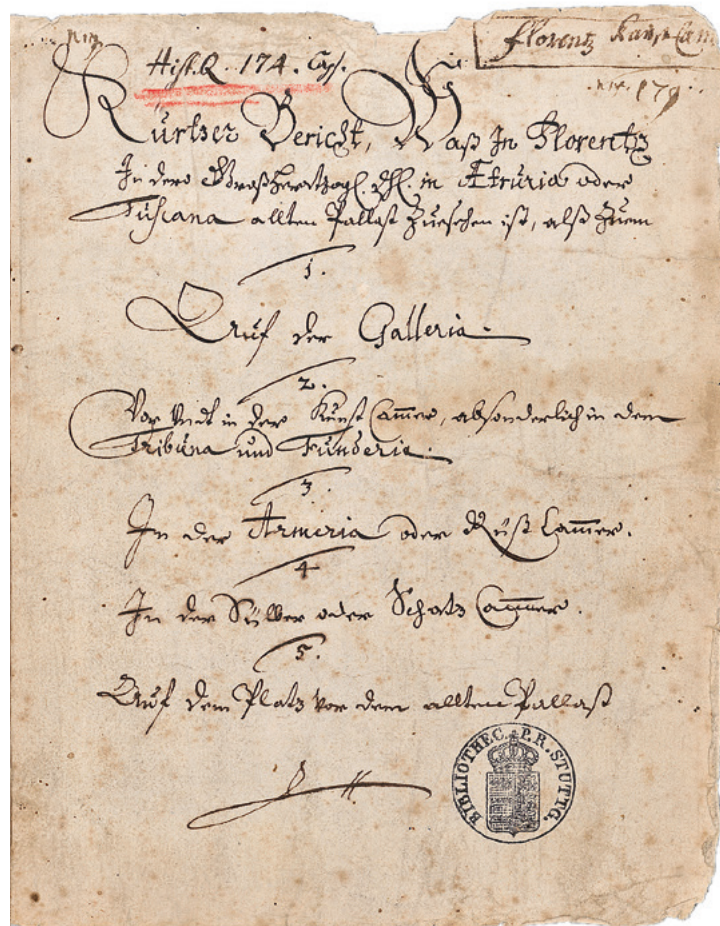 Hist. Q. 174. Cps.
florentz Kunst Cam
nro. 179
Kurtzer Bericht, Waß In Florentz
In dero Großhertzogl. Dhl. in Etruria oder
Tuscana allten Pallast Zuesehen ist, alß Zuem
1.
Auf der Galleria.
2.
Vor Vndt in der Kunst Cam̅er, absonderlich in dem
Tribuna und Funderia.
3.
In der Armeria oder Rüst Cam̅er.
4
In der Silber oder Schatz Cam̅er.
5.
Auf dem Platz vor dem allten Pallast
BIBLIOTHEC. P. R. STUTTG.